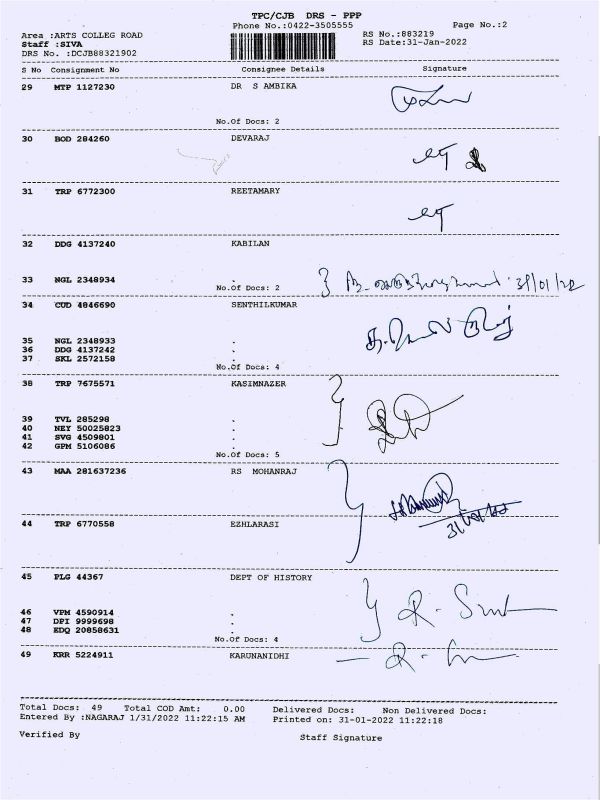 TPC/CJB DRS - PPP
Phone No.:0422-3505555 Page No.:2
Area :ARTS COLLEG ROAD RS No.:883219
Staff :SIVA RS Date:31-Jan-2022
DRS No. :DCJB88321902
S No Consignment No Consignee Details Signature
29 MTP 1127230 DR S AMBIKA
No.Of Docs: 2
30 BOD 284260 DEVARAJ
31 TRP 6772300 REETAMARY
32 DDG 4137240 KABILAN
33 NGL 2348934 .
No.Of Docs: 2 31/01/22
34 CUD 4846690 SENTHILKUMAR
35 NGL 2348933 .
36 DDG 4137242 .
37 SKL 2572158 .
No.Of Docs: 4
38 TRP 7675571 KASIMNAZER
39 TVL 285298 .
40 NEY 50025823 .
41 SVG 4509801 .
42 GPM 5106086 .
No.Of Docs: 5
43 MAA 281637236 RS MOHANRAJ
44 TRP 6770558 EZHLARASI
45 PLG 44367 DEPT OF HISTORY
46 VPM 4590914 .
47 DPI 9999698 .
48 EDQ 20858631 .
No.Of Docs: 4
49 KRR 5224911 KARUNANIDHI
Total Docs: 49 Total COD Amt: 0.00 Delivered Docs: Non Delivered Docs:
Entered By :NAGARAJ 1/31/2022 11:22:15 AM Printed on: 31-01-2022 11:22:18
Verified By Staff Signature